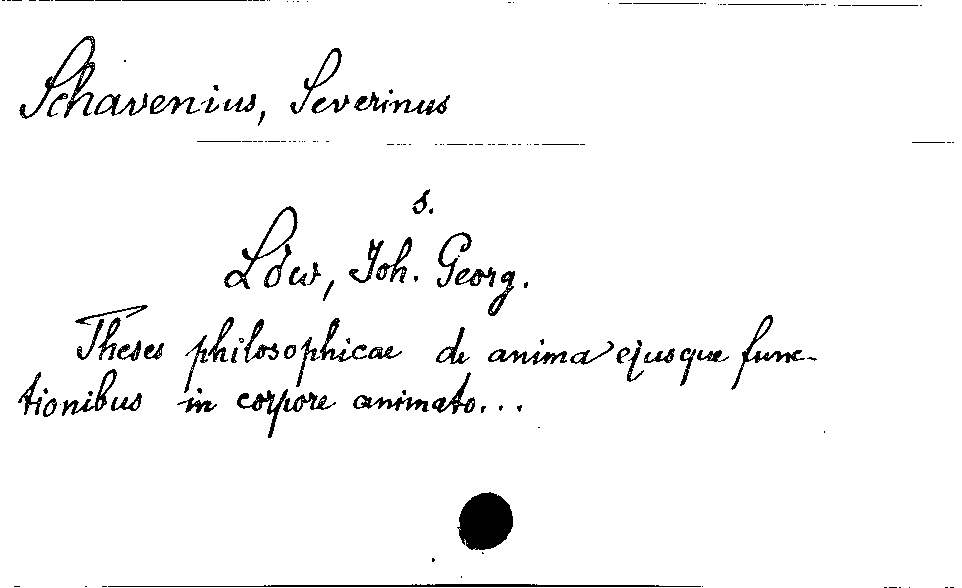 Schavenius, Severinus
s.
Löw, Joh. Georg.
Theses philosophicae de anima ejusque func-
tionibus in corpore animato...